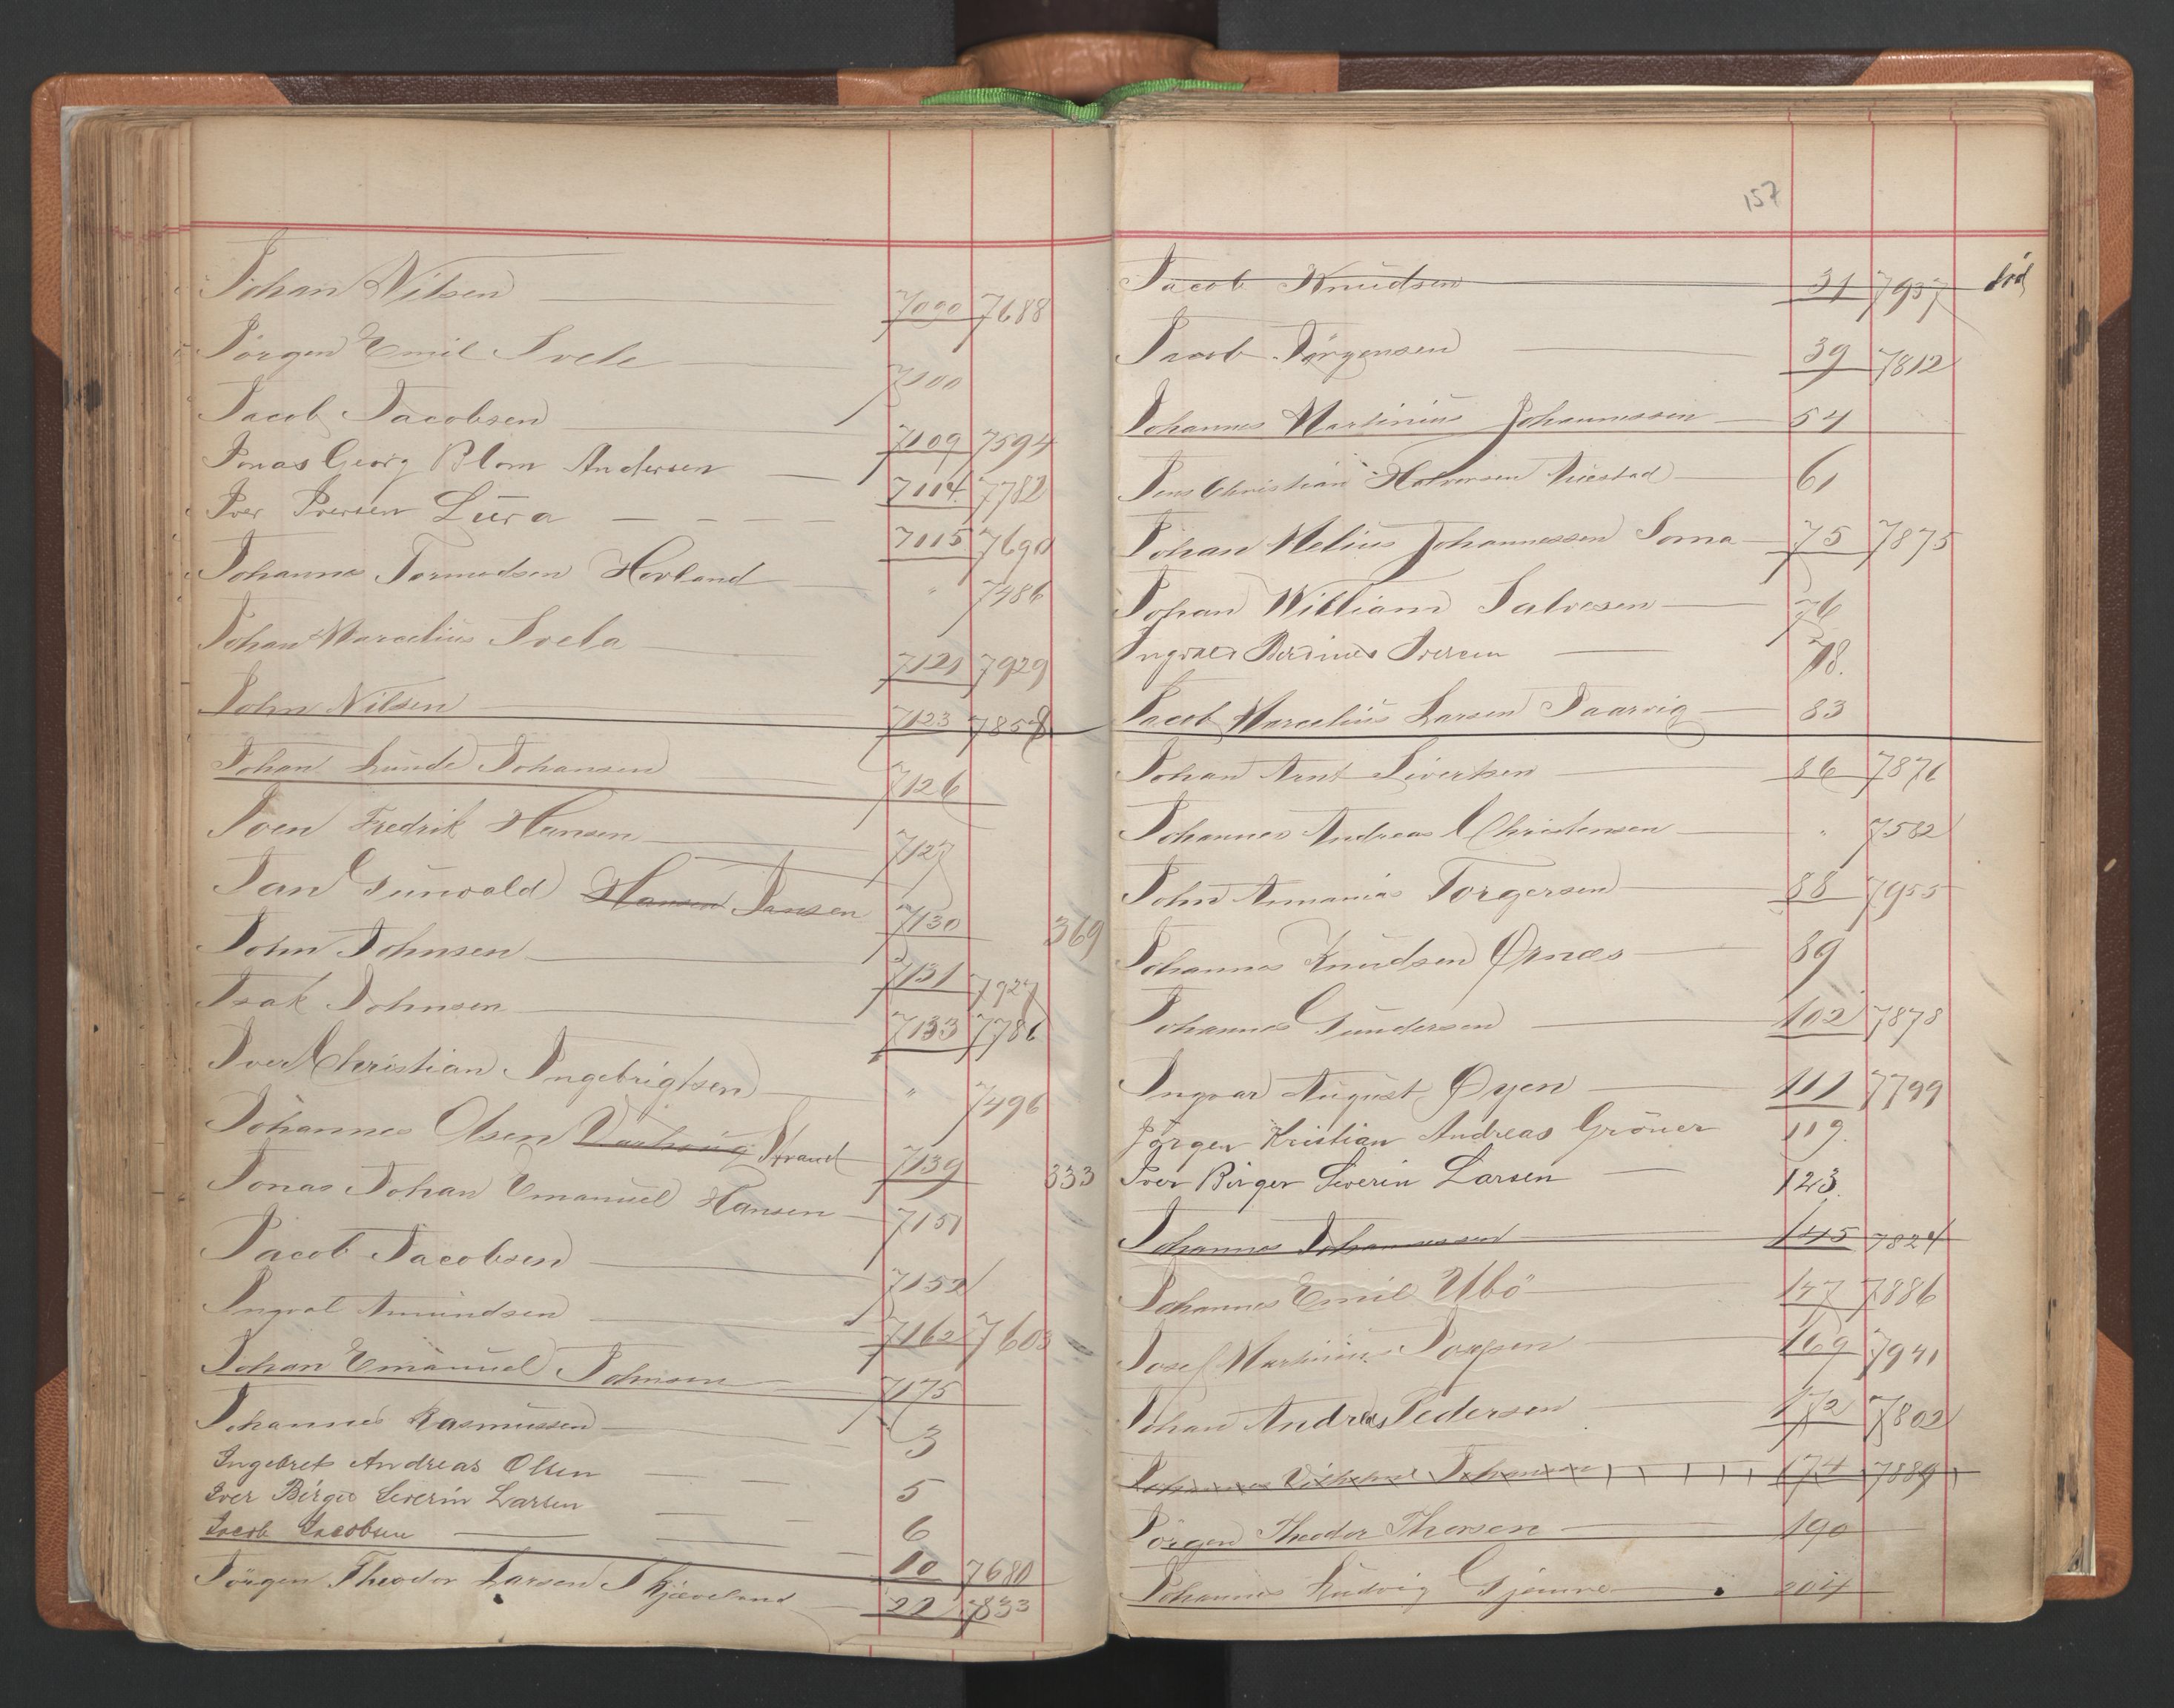 Johan Nilsen 7090 7688
Jörgen Emil Svele 7100
Jacob Jacobsen 7109 7594
Jonas Georg Blom Andersen 7114 7782
Iver Iversen Lura 7115 7690
Johannes Tormodsen Hovland " 7486
Johan Marcelius Svela 7121 7929
John Nilsen 7123 7858
Johan Lunde Johansen 7126
Iven Fredrik Hansen 7127
Jan Gunvald Hansen Jansen 7130 369
John Johnsen 7131 7927
Isak Johnsen 7133 7786
Iver Christian Ingebrigtsen " 7496
Johannes Olsen Strand 7139 333
Jonas Johan Emanuel Hansen 7151
Jacob Jacobsen 7152
Ingval Amundsen 7162 7603
Johan Emanuel Johnsen 7175
Johannes Rasmussen 3
Ingebret Andreas Olsen 5
Iver Birger Severin Larsen 6
Jacob Jacobsen 10 7680
Jörgen Theodor Larsen Skjæveland 22 7833
157
Jacob Knudsen 31 7937 död
Jacob Jörgensen 39 7812
Johannes Martinius Johannessen 54
Jens Christian Halvorsen Auestad 61
Johan Melius Johannessen Soma 75 7875
Johan William Salvesen 76
Ingvald Berdines Iversen 78.
Jacob Marcelius Larsen Taarvig 83
Johan Arnt Sivertsen 86 7876
Johannes Andreas Christensen " 7582
John Ananias Torgersen 88 7955
Johannes Knudsen Ørnæs 89
Johannes Gundersen 102 7878
Ingvar August Øyen 111 7799
Jørgen Kristian Andreas Gröner 119.
Iver Birger Severin Larsen 123.
Johannes Johannessen 145 7824
Johannes Emil Ubö 147 7886
Josef Martinius 169 7941
Johan Andreas Pedersen 172 7802
Johannes Vilhelm Johansen 174 7889
Jörgen Theodor Thorsen 190
Johannes Ludvig Gjemre 204